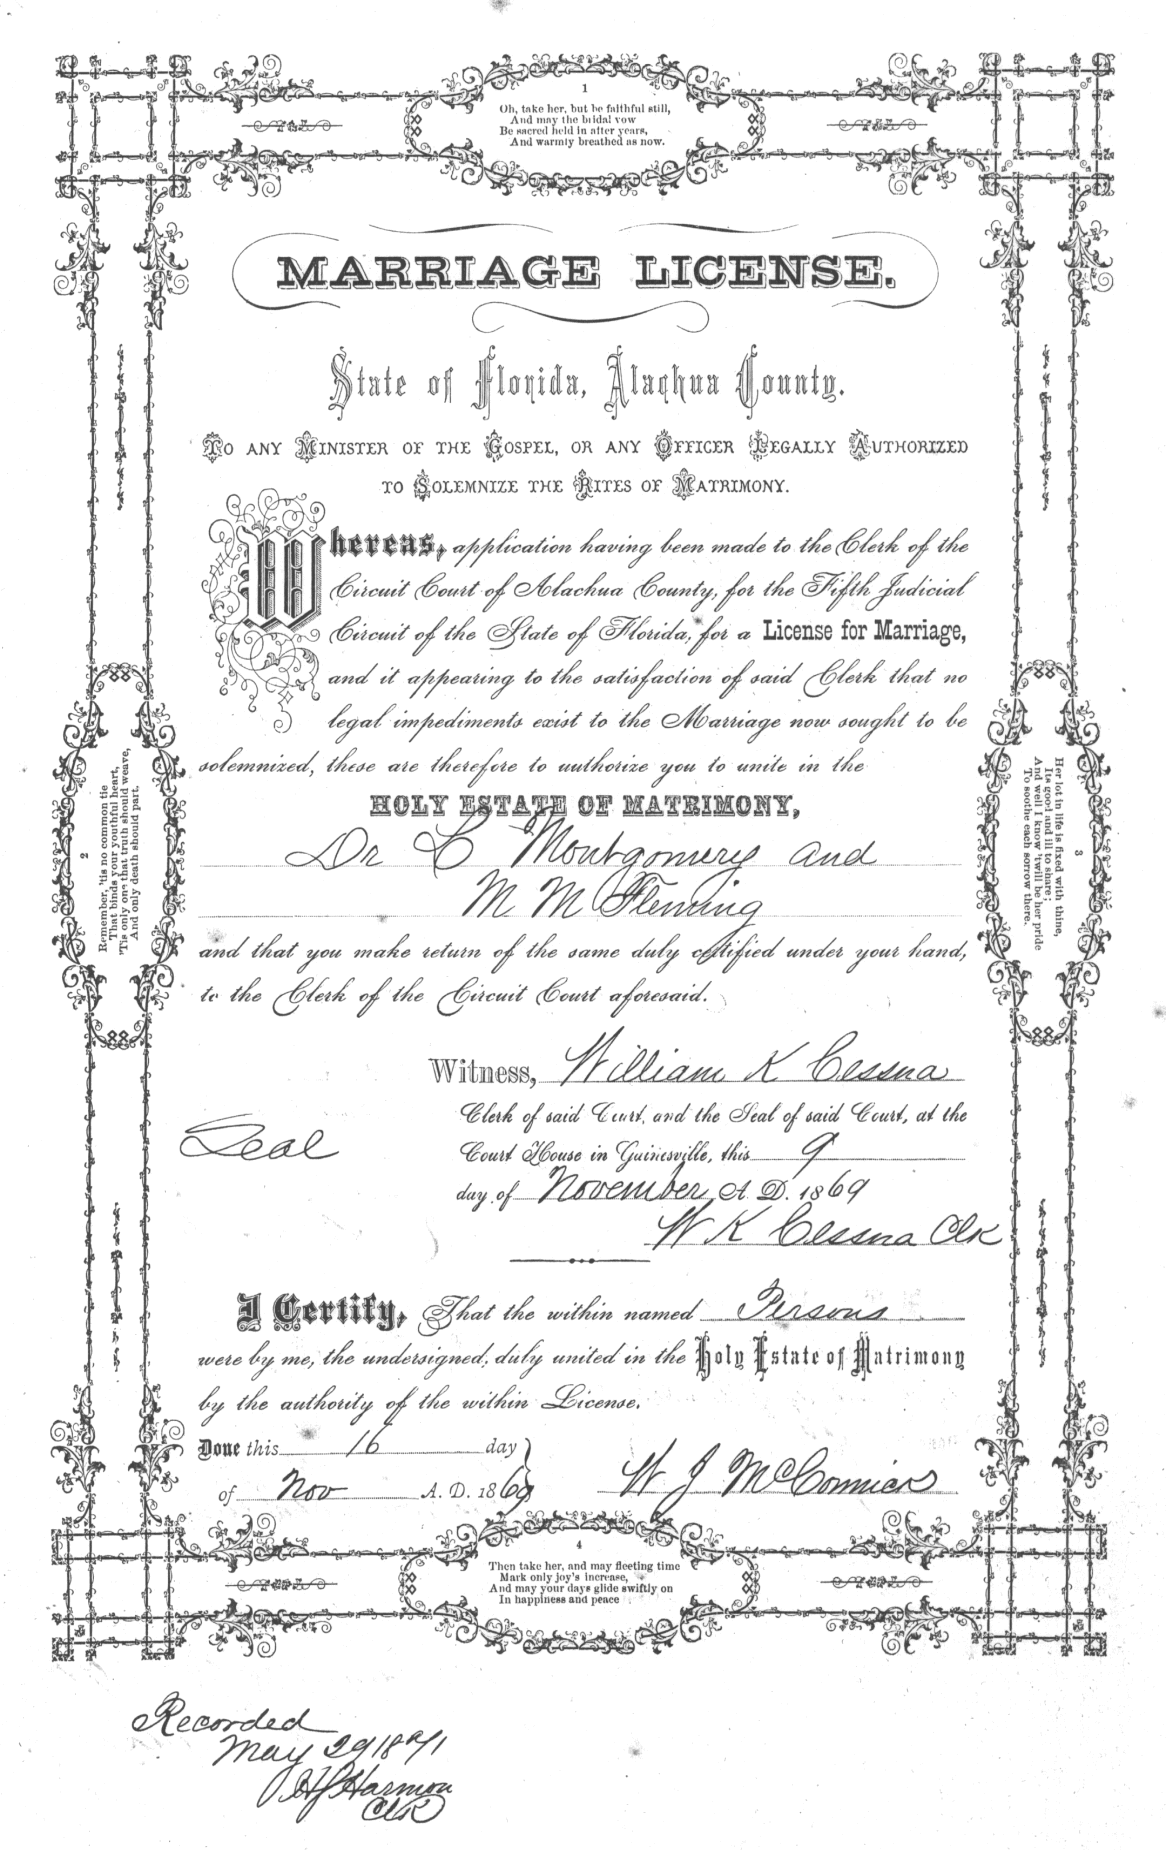 1
Oh, take her, but be faithful still,
And may the bridal vow
Be sacred held in after years,
And warmly breathed as now.
MARRIAGE LICENSE.
State of Florida, Alachua County.
To any Minister of the Gospel, or any Officer Legally Authorized
to Solemnize the Rites of Matrimony.
Whereas, application having been made to the Clerk of the
Circuit Court of Alachua County, for the Fifth Judicial
Circuit of the State of Florida, for a License for Marriage,
and it appearing to the satisfaction of said Clerk that no
legal impediments exist to the Marriage now sought to be
solemnized, these are therefore to authorize you to unite in the
HOLY ESTATE OF MATRIMONY,
Dr C Montgomery and
M M Fleming
and that you make return of the same duly certified under your hand,
to the Clerk of the Circuit Court aforesaid.
2
Remember, 'tis no common tie
That binds your youthful heart,
'Tis only one that truth should weave,
And only death should part.
3
Her lot in life is fixed with thine,
Its good and ill to share;
And well I know 'twill be her pride
To soothe each sorrow there.
Witness, William K Cessna
Clerk of said Court, and the Seal of said Court, at the
Seal
Court House in Gainesville, this 9
day of November A. D. 1869
W K Cessna Clk
I Certify, That the within named Persons
were by me, the undersigned, duly united in the Holy Estate of Matrimony
by the authority of the within License.
Done this 16 day
of Nov A. D. 1869
W J McCormick
4
Then take her, and may fleeting time
Mark only joy's increase,
And may your days glide swiftly on
In happiness and peace
Recorded
May 29 1871
Harmon
Clk